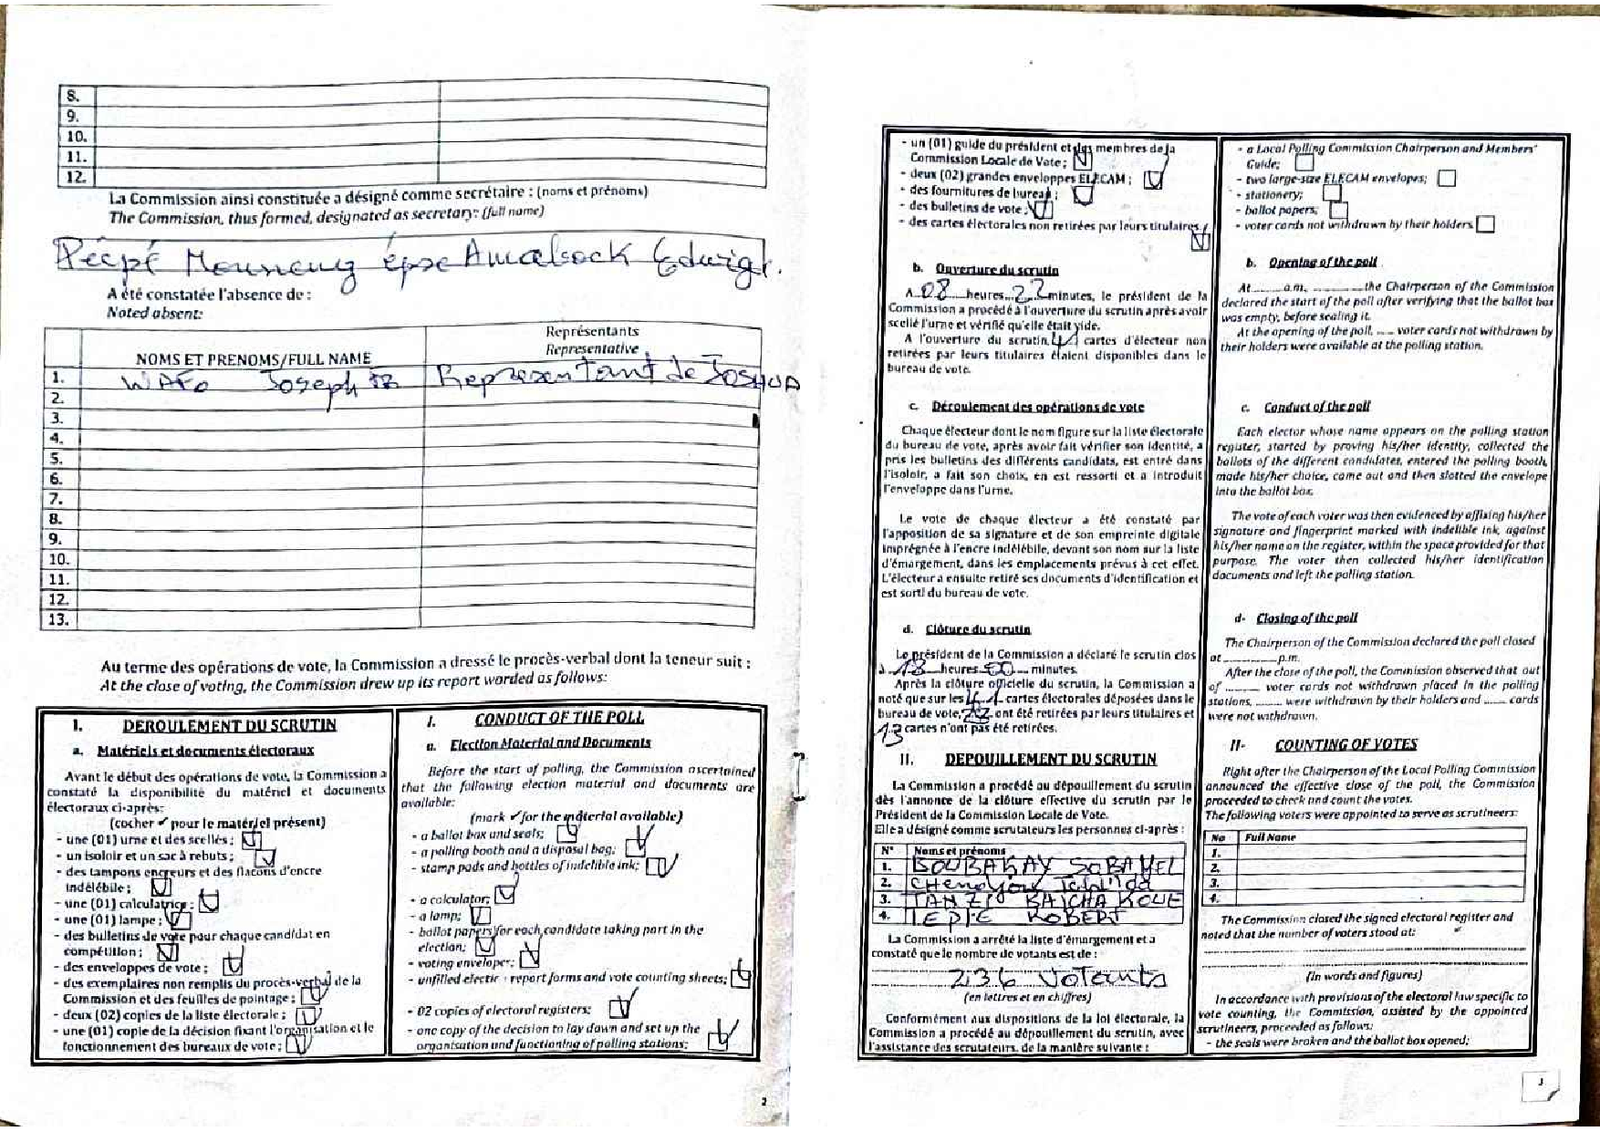 8.
9.
10.
11.
12.
La Commission ainsi constituée a désigné comme secrétaire : (noms et prénoms)
The Commission, thus formed, designated as secretary: (full name)
épse Amabock Edwige.
A été constatée l'absence de :
Noted absent:
NOMS ET PRENOMS/FULL NAME
Représentants
Representative
1. WAFO Joseph Représentant de JOSHUA
2.
3.
4.
5.
6.
7.
8.
9.
10.
11.
12.
13.
Au terme des opérations de vote, la Commission a dressé le procès-verbal dont la teneur suit :
At the close of voting, the Commission drew up its report worded as follows:
I. DEROULEMENT DU SCRUTIN
a. Matériels et documents électoraux
Avant le début des opérations de vote, la Commission a
constaté la disponibilité du matériel et documents
électoraux ci-après:
(cocher ✓ pour le matériel présent)
- une (01) urne et des scellés ;
- un isoloir et un sac à rebuts ;
- des tampons encreurs et des flacons d'encre
indélébile ;
- une (01) calculatrice ;
- une (01) lampe ;
- des bulletins de vote pour chaque candidat en
compétition ;
- des enveloppes de vote ;
- des exemplaires non remplis du procès-verbal de la
Commission et des feuilles de pointage ;
- deux (02) copies de la liste électorale ;
- une (01) copie de la décision fixant l'organisation et le
fonctionnement des bureaux de vote ;
I. CONDUCT OF THE POLL
a. Election Material and Documents
Before the start of polling, the Commission ascertained
that the following election material and documents are
available:
(mark ✓ for the material available)
- a ballot box and seals;
- a polling booth and a disposal bag;
- stamp pads and bottles of indelible ink;
- a calculator;
- a lamp;
- ballot papers for each candidate taking part in the
election;
- voting envelopes;
- unfilled report forms and vote counting sheets;
- 02 copies of electoral registers;
- one copy of the decision to lay down and set up the
organisation and functioning of polling stations;
2
- un (01) guide du président et des membres de la
Commission Locale de Vote ;
- deux (02) grandes enveloppes ELECAM ;
- des fournitures de bureau ;
- des bulletins de vote ;
- des cartes électorales non retirées par leurs titulaires
b. Ouverture du scrutin
A 08 heures 22 minutes, le président de la
Commission a procédé à l'ouverture du scrutin après avoir
scellé l'urne et vérifié qu'elle était vide.
A l'ouverture du scrutin, cartes d'électeur non
retirées par leurs titulaires étaient disponibles dans le
bureau de vote.
c. Déroulement des opérations de vote
Chaque électeur dont le nom figure sur la liste électorale
du bureau de vote, après avoir fait vérifier son identité, a
pris les bulletins des différents candidats, est entré dans
l'isoloir, a fait son choix, en est ressorti et a introduit
l'enveloppe dans l'urne.
Le vote de chaque électeur a été constaté par
l'apposition de sa signature et de son empreinte digitale
imprégnée à l'encre indélébile, devant son nom sur la liste
d'émargement, dans les emplacements prévus à cet effet.
L'électeur a ensuite retiré ses documents d'identification et
est sorti du bureau de vote.
d. Clôture du scrutin
Le président de la Commission a déclaré le scrutin clos
à 18 heures 00 minutes.
Après la clôture officielle du scrutin, la Commission a
noté que sur les cartes électorales déposées dans le
bureau de vote, ont été retirées par leurs titulaires et
13 cartes n'ont pas été retirées.
II. DEPOUILLEMENT DU SCRUTIN
La Commission a procédé au dépouillement du scrutin
dès l'annonce de la clôture effective du scrutin par le
Président de la Commission Locale de Vote.
Elle a désigné comme scrutateurs les personnes ci-après :
N° Noms et prénoms
1. BOUBAKAY
2.
3.
4. ROBERT
La Commission a arrêté la liste d'émargement et a
constaté que le nombre de votants est de :
236 Votants
(en lettres et en chiffres)
Conformément aux dispositions de la loi électorale, la
Commission a procédé au dépouillement du scrutin, avec
l'assistance des scrutateurs, de la manière suivante :
- a Local Polling Commission Chairperson and Members'
Guide;
- two large-size ELECAM envelopes;
- stationery;
- ballot papers;
- voter cards not withdrawn by their holders
b. Opening of the poll
At ........ a.m, ........ the Chairperson of the Commission
declared the start of the poll after verifying that the ballot box
was empty, before sealing it.
At the opening of the poll, ..... voter cards not withdrawn by
their holders were available at the polling station.
c. Conduct of the poll
Each elector whose name appears on the polling station
register, started by proving his/her identity, collected the
ballots of the different candidates, entered the polling booth,
made his/her choice, came out and then slotted the envelope
into the ballot box.
The vote of each voter was then evidenced by affixing his/her
signature and fingerprint marked with indelible ink, against
his/her name on the register, within the space provided for that
purpose. The voter then collected his/her identification
documents and left the polling station.
d- Closing of the poll
The Chairperson of the Commission declared the poll closed
at ............ p.m.
After the close of the poll, the Commission observed that out
of ........ voter cards not withdrawn placed in the polling
stations, ........ were withdrawn by their holders and ...... cards
were not withdrawn.
II- COUNTING OF VOTES
Right after the Chairperson of the Local Polling Commission
announced the effective close of the poll, the Commission
proceeded to check and count the votes.
The following voters were appointed to serve as scrutineers:
No Full Name
1.
2.
3.
4.
The Commission closed the signed electoral register and
noted that the number of voters stood at:
(In words and figures)
In accordance with provisions of the electoral law specific to
vote counting, the Commission, assisted by the appointed
scrutineers, proceeded as follows:
- the seals were broken and the ballot box opened;
3